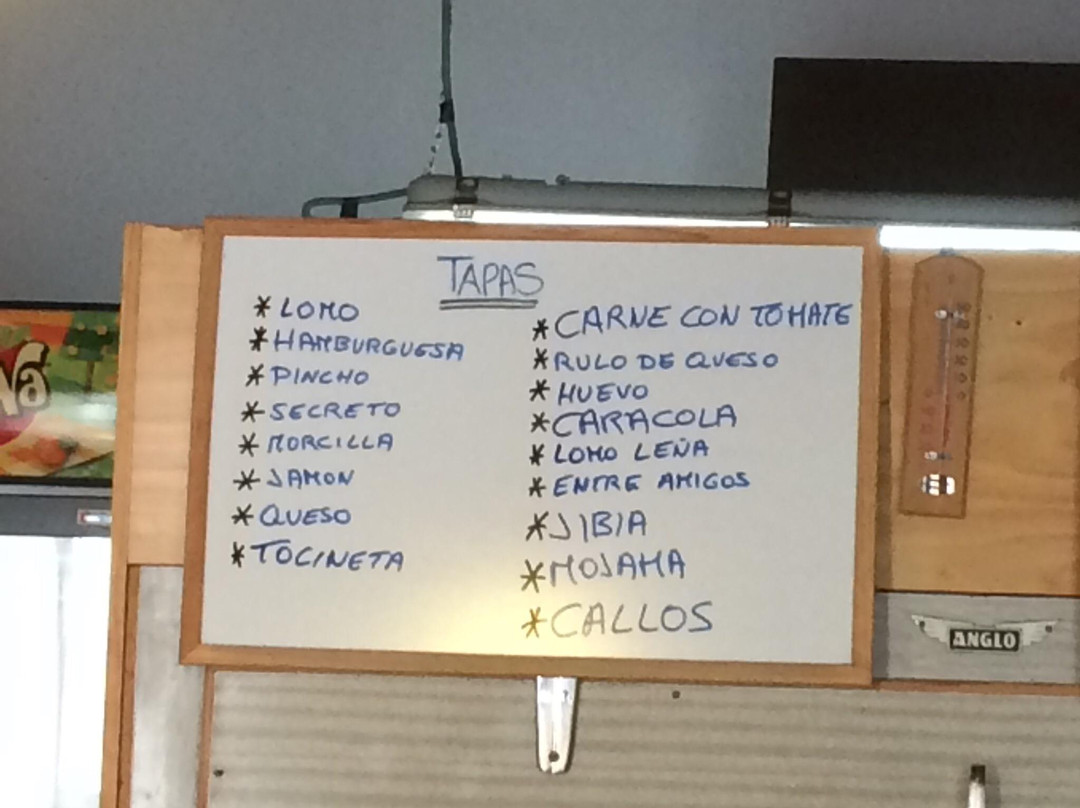 TAPAS
* LOMO
* HAMBURGUESA
* PINCHO
* SECRETO
* MORCILLA
* JAMON
* QUESO
* TOCINETA
* CARNE CON TOMATE
* RULO DE QUESO
* HUEVO
* CARACOLA
* LOMO LEÑA
* ENTRE AMIGOS
* JIBIA
* MOJAMA
* CALLOS
ANGLO